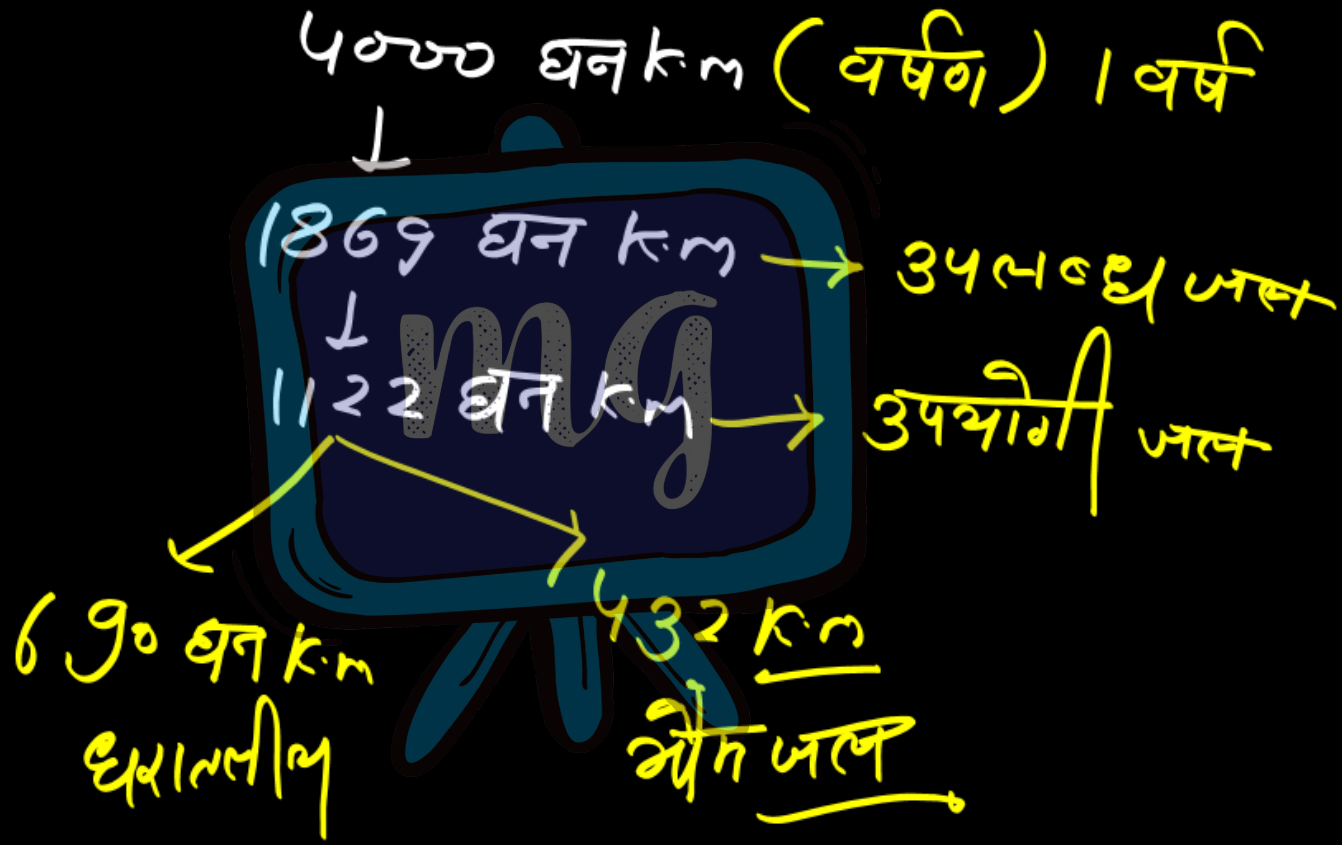 4000 घन k.m (वर्षण) 1 वर्ष
1869 घन k.m → उपलब्ध जल
1122 घन k.m → उपयोगी जल
690 घन k.m
धरातलीय
432 k.m
भौम जल
mg